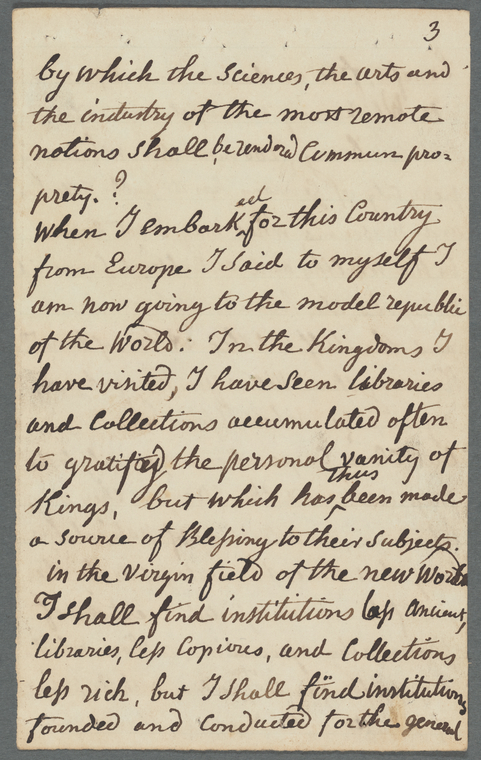 3
by which the Sciences, the arts and
the industry of the most remote
nations shall be rendord Commun pro=
prety. ?
When I embarked for this Country
from Europe I Said to myself I
am now going to the model republic
of the World. In the Kingdoms I
have visited, I have Seen libraries
and Collections accumulated often
to gratified the personal vanity of
Kings, but which has thus been made
a source of Blessing to their Subjects.
in the Virgin field of the new World
I shall find institutions less Ancient,
libraries, less Copious, and Collections
less rich, but I shall find institutions
founded and Conducted for the general